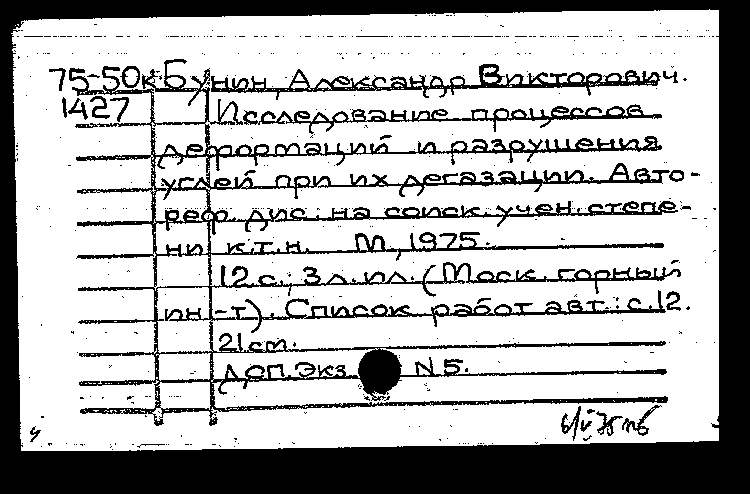 75-50к Бунин, Александр Викторович.
1427 Исследование процессов
деформаций и разрушения
углей при их дегазации. Авто-
реф. дис. на соиск. учен. степе-
ни к.т.н. М., 1975.
12 с.; 3 л. ил. (Моск. горный
ин-т). Список работ авт.: с. 12.
21 см.
Доп. экз. N 5.